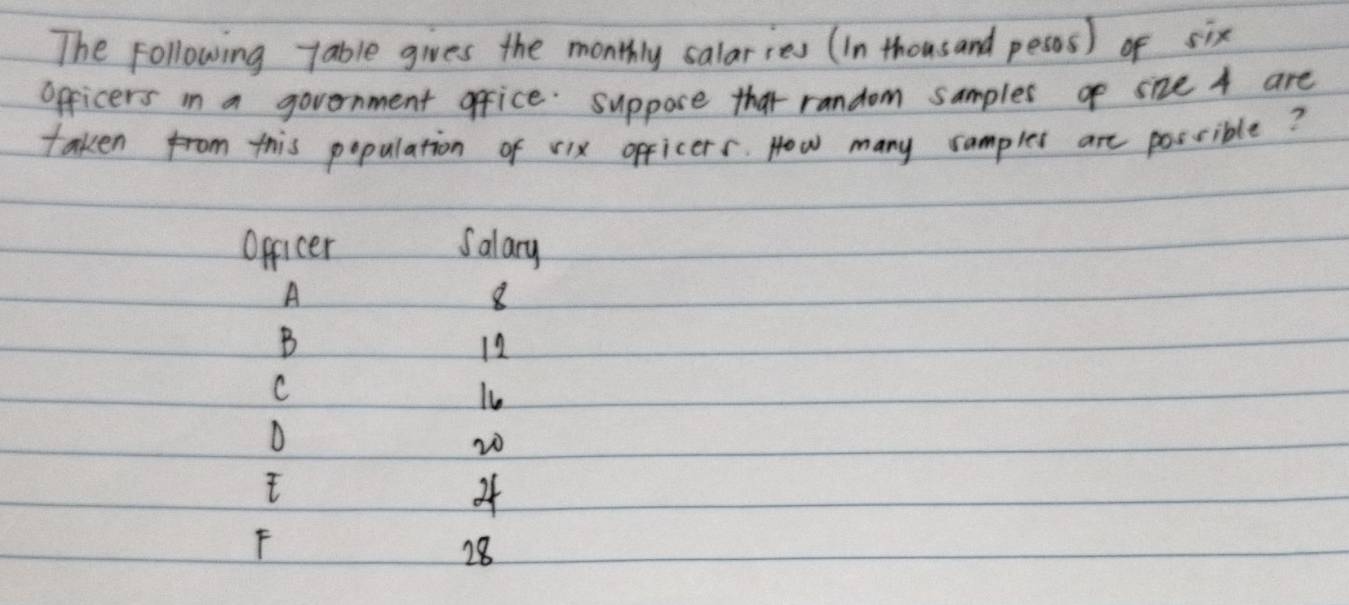 The Following Table gives the monthly salaries (In thousand pesos) of six
Officers in a government office. Suppose that random samples of size 4 are
taken from this population of six officers. How many samples are possible?
Officer Salary
A 8
B 12
C 16
D 20
E 24
F 28